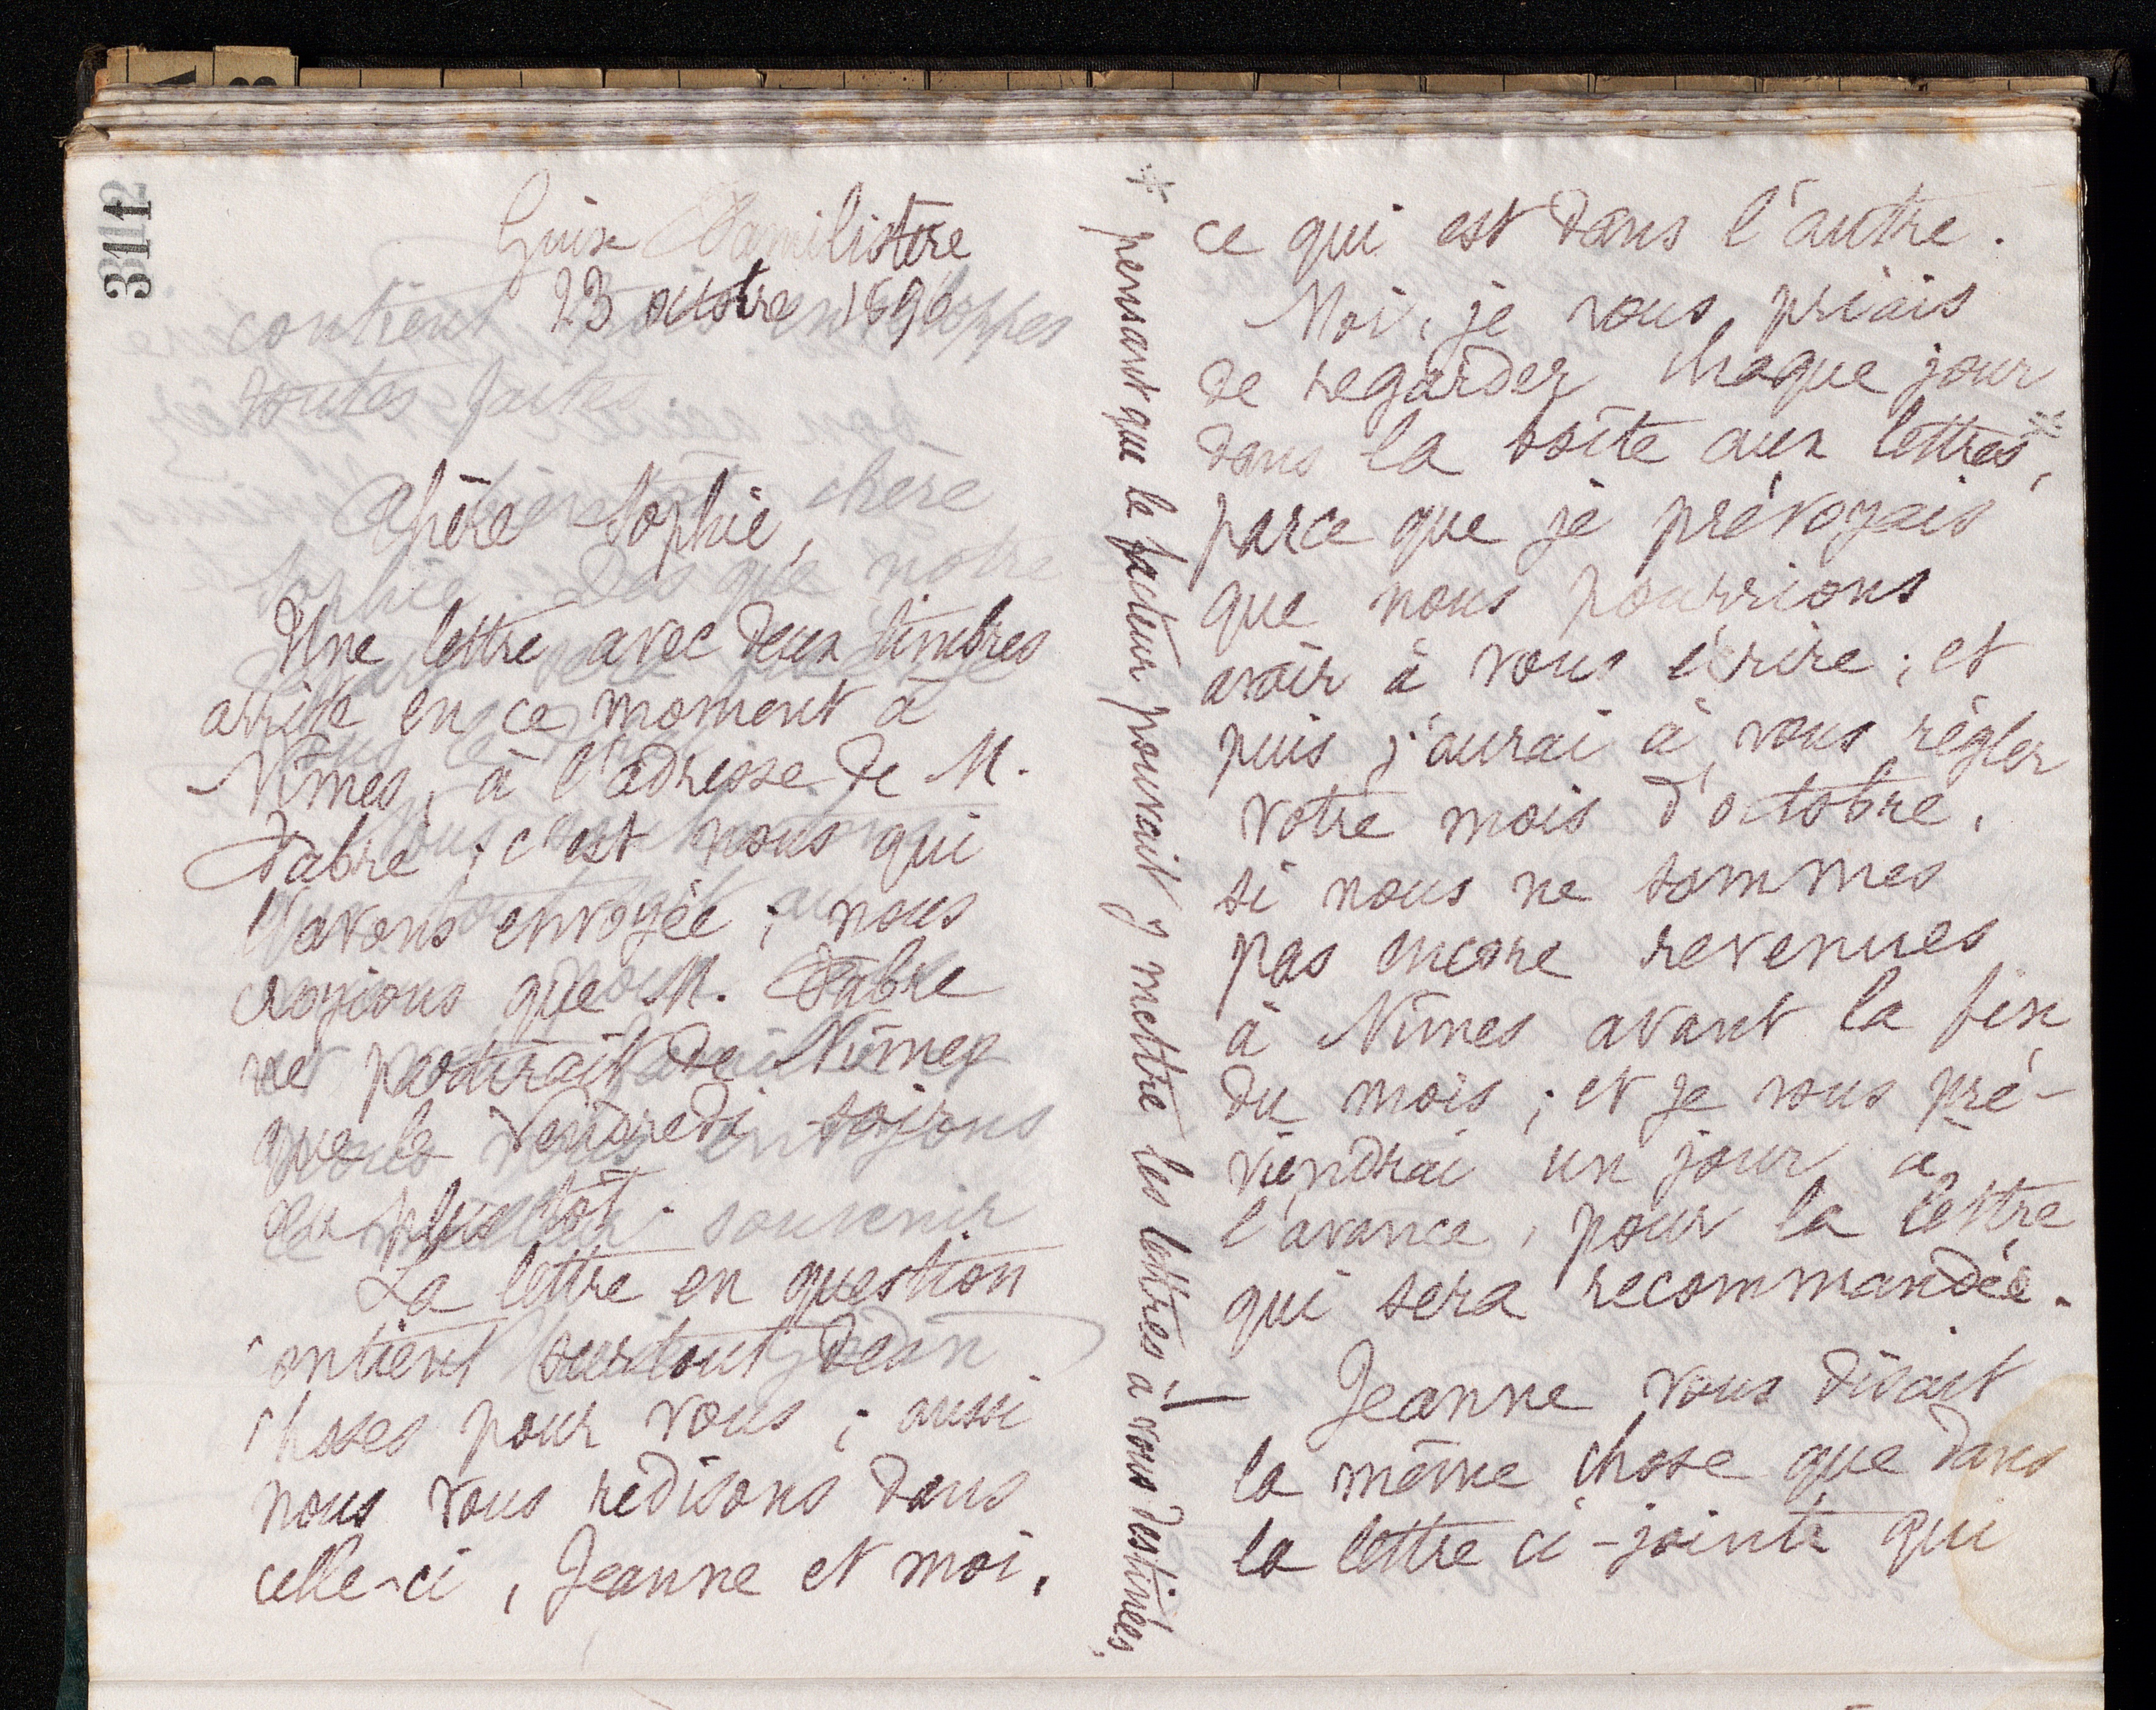 311
Guise Familistère
23 octobre 1896
Chère Sophie,
Une lettre avec deux timbres
arrive en ce moment à
Nîmes, à l'adresse de M.
Fabre ; c'est nous qui
l'avons envoyée ; nous
croyions que M. Fabre
ne partirait de Nîmes
que le Vendredi soir
au plus tôt.
La lettre en question
contient surtout des
choses pour vous ; aussi
nous vous redisons dans
celle-ci, Jeanne et moi,
ce qui est dans l'autre.
Moi, je vous priais
de regarder chaque jour
dans la boîte aux lettres*,
parce que je prévoyais
que nous pourrions
avoir à vous écrire ; et
puis j'aurai à vous régler
votre mois d'octobre,
si nous ne sommes
pas encore revenues
à Nîmes avant la fin
du mois ; et je vous pré-
viendrai un jour à
l'avance, pour la lettre
qui sera recommandée.
Jeanne vous disait
la même chose que dans
la lettre ci-jointe qui
* pensant que le facteur pouvait y mettre les lettres à vous destinées,
contient
enveloppes
toutes faites.
chère
Sophie. Dès que notre
nous vous envoyons
le meilleur souvenir